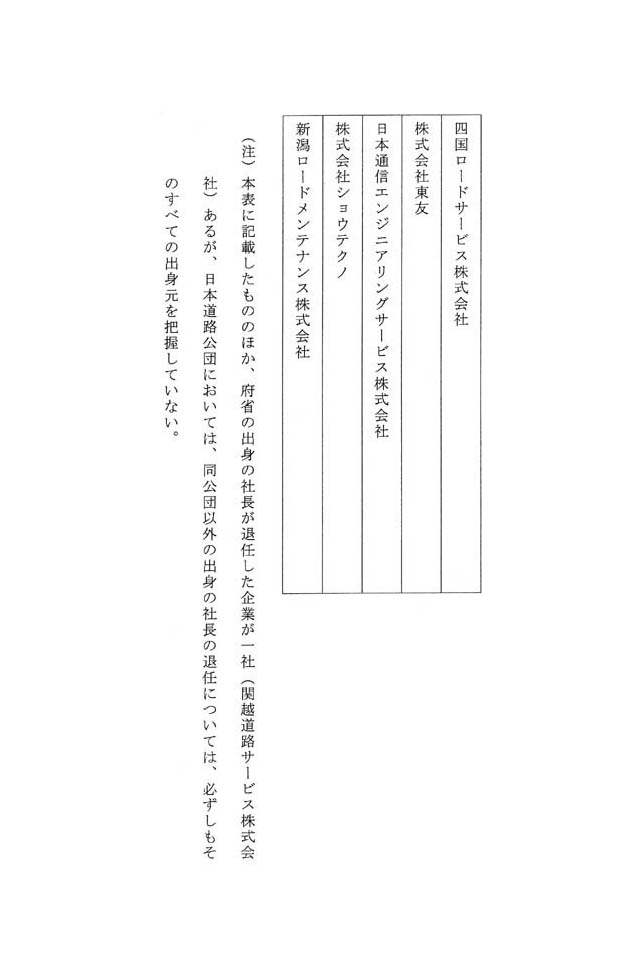 四国ロードサービス株式会社
株式会社東友
日本通信エンジニアリングサービス株式会社
株式会社ショウテクノ
新潟ロードメンテナンス株式会社
（注）本表に記載したもののほか、府省の出身の社長が退任した企業が一社（関越道路サービス株式会
社）あるが、日本道路公団においては、同公団以外の出身の社長の退任については、必ずしもそ
のすべての出身元を把握していない。